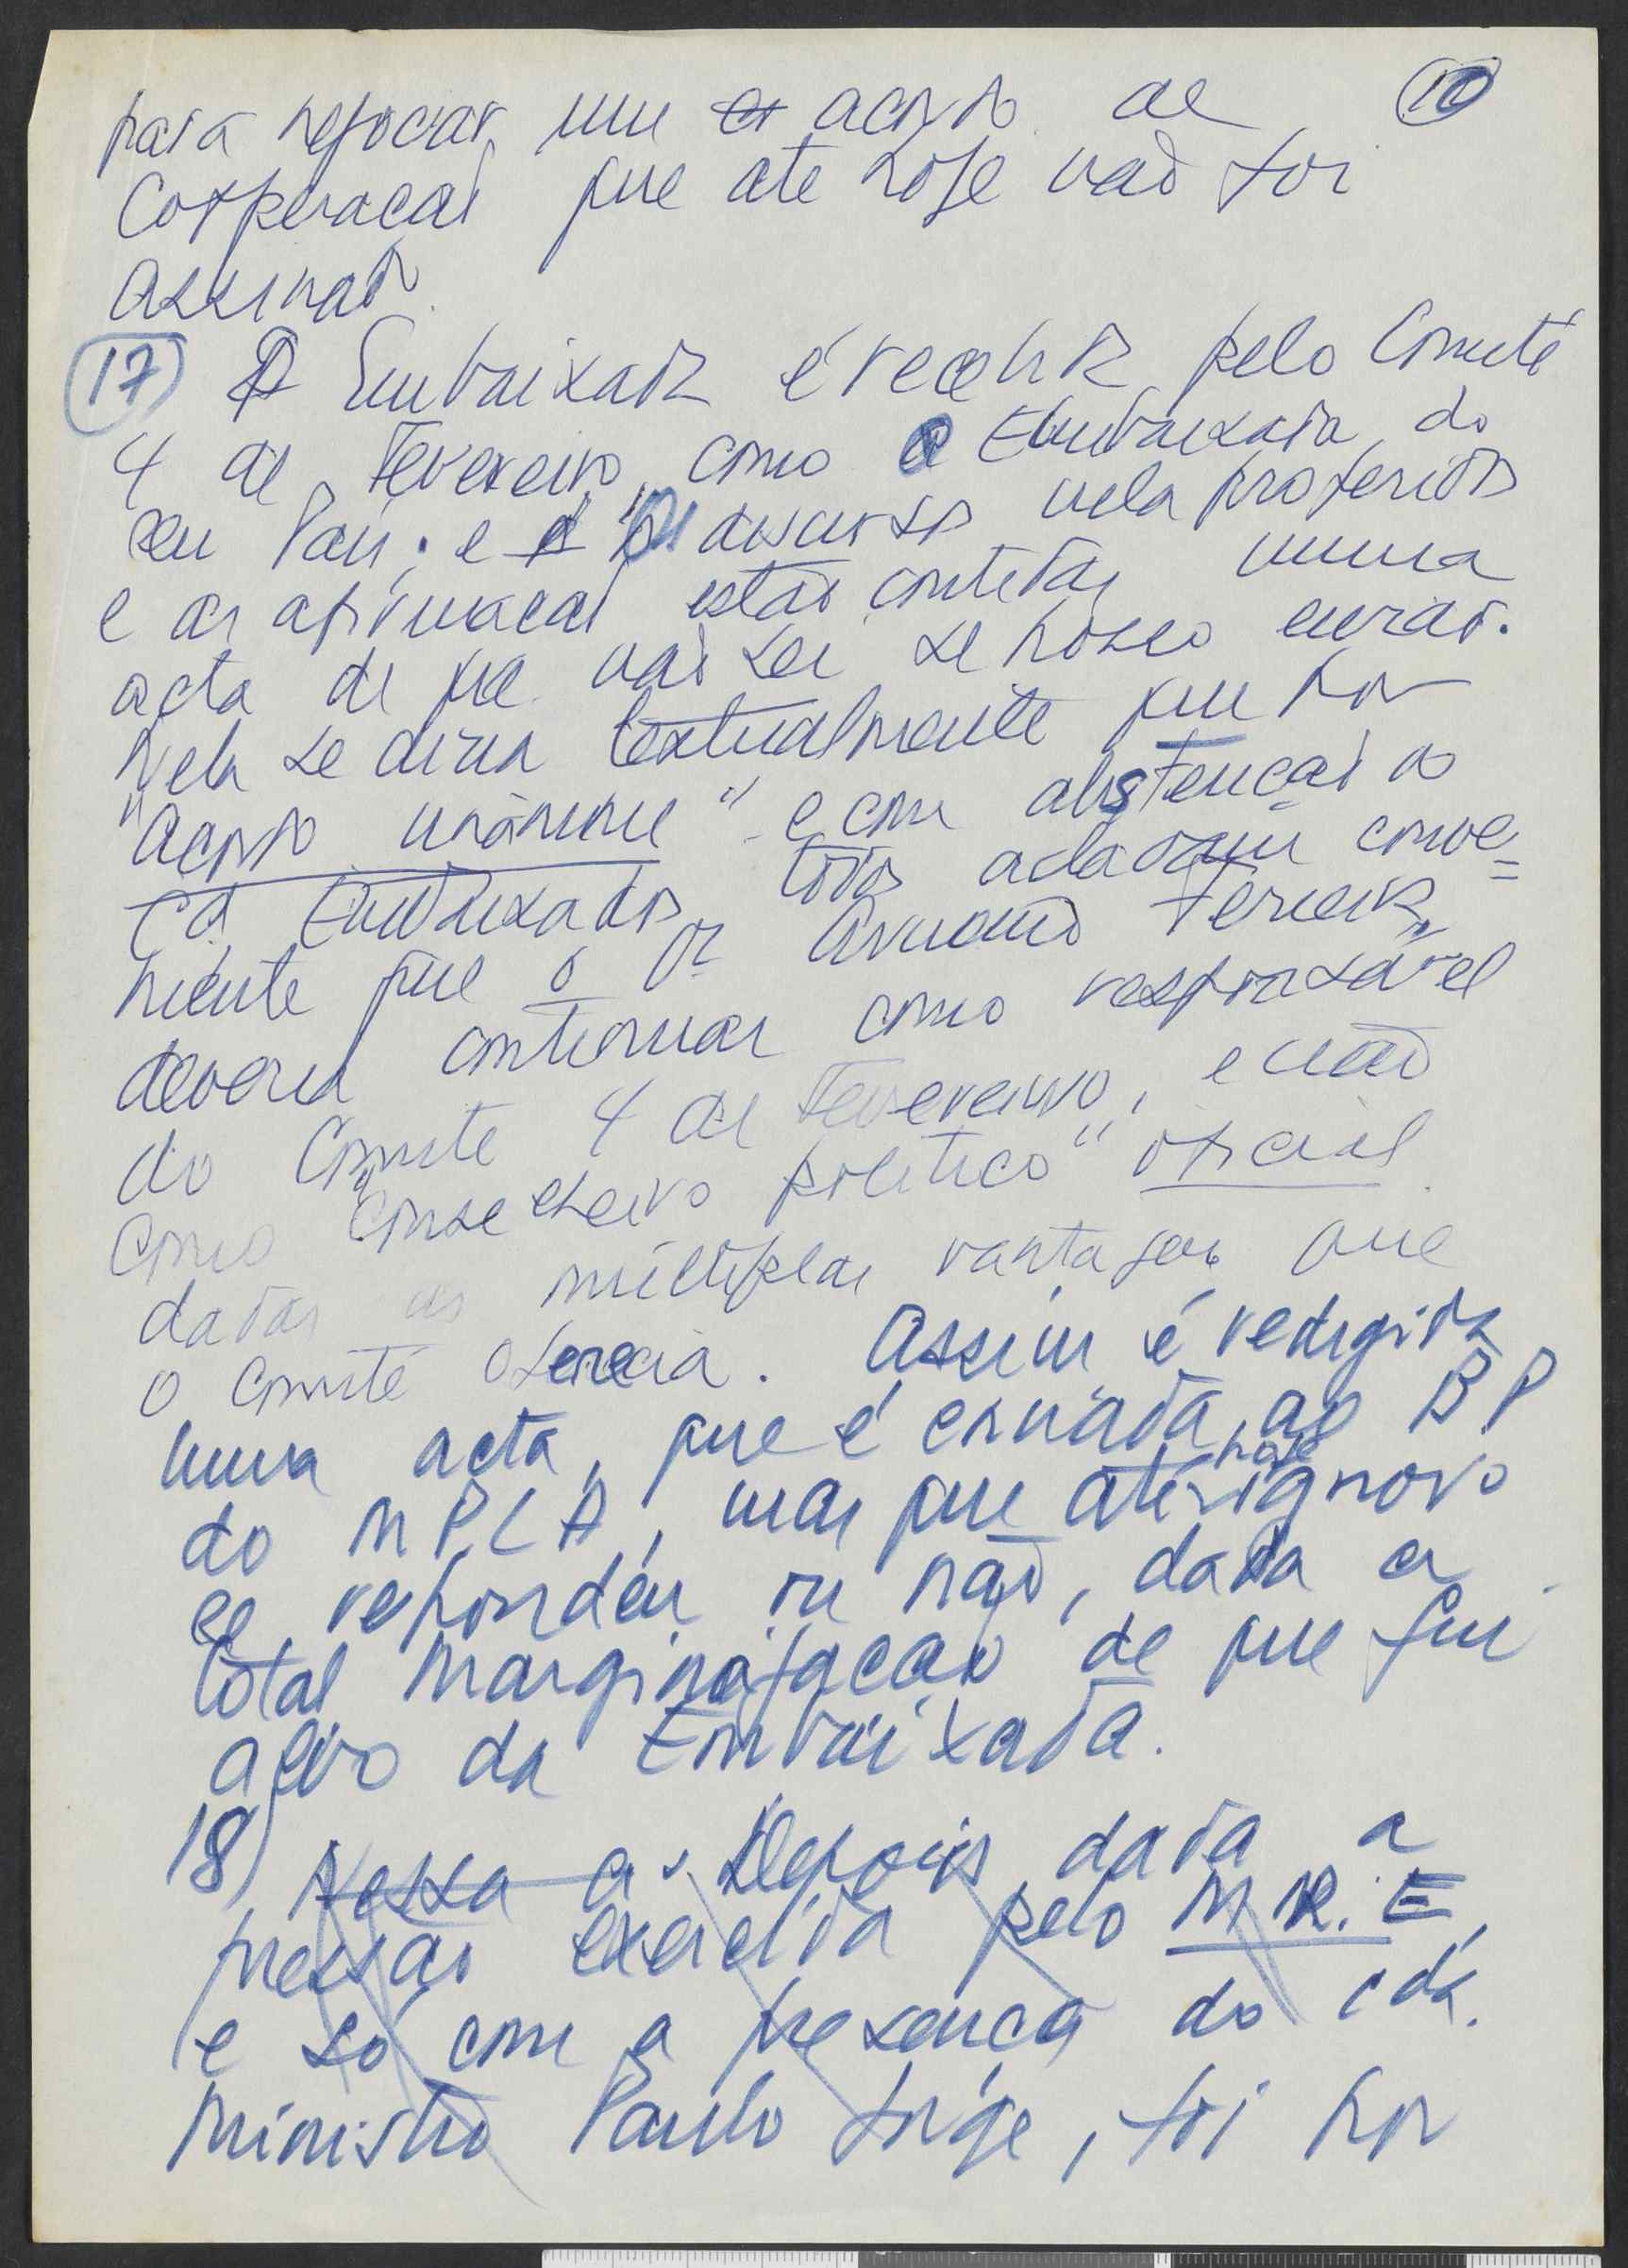 10
para negociar um acordo de
Cooperação que até hoje não foi
assinado.
17) Embaixador é recebido pelo Comité
4 de Fevereiro como o Embaixador do
seu País; e os discursos nela proferidos
e as afirmações estão contidas numa
acta de que não sei se posso enviar.
Nela se dizia textualmente que por
"acordo unânime" e com abstenção do
cda Embaixador, todos achavam conve=
niente que o Dr Armando Ferreira
deveria continuar como responsável
do Comité 4 de Fevereiro, e não
como "conselheiro político" oficial
dadas as múltiplas vantagens que
o Comité oferecia. Assim é redigida
numa acta, que é enviada ao BP
do MPLA, mas que até hoje ignoro
se responderam ou não, dada a
total marginalização de que fui
alvo da Embaixada.
18) Nessa a Depois dada a
pressão exercida pelo M.R.E,
e só com a presença do cda.
ministro Paulo Jorge, foi por